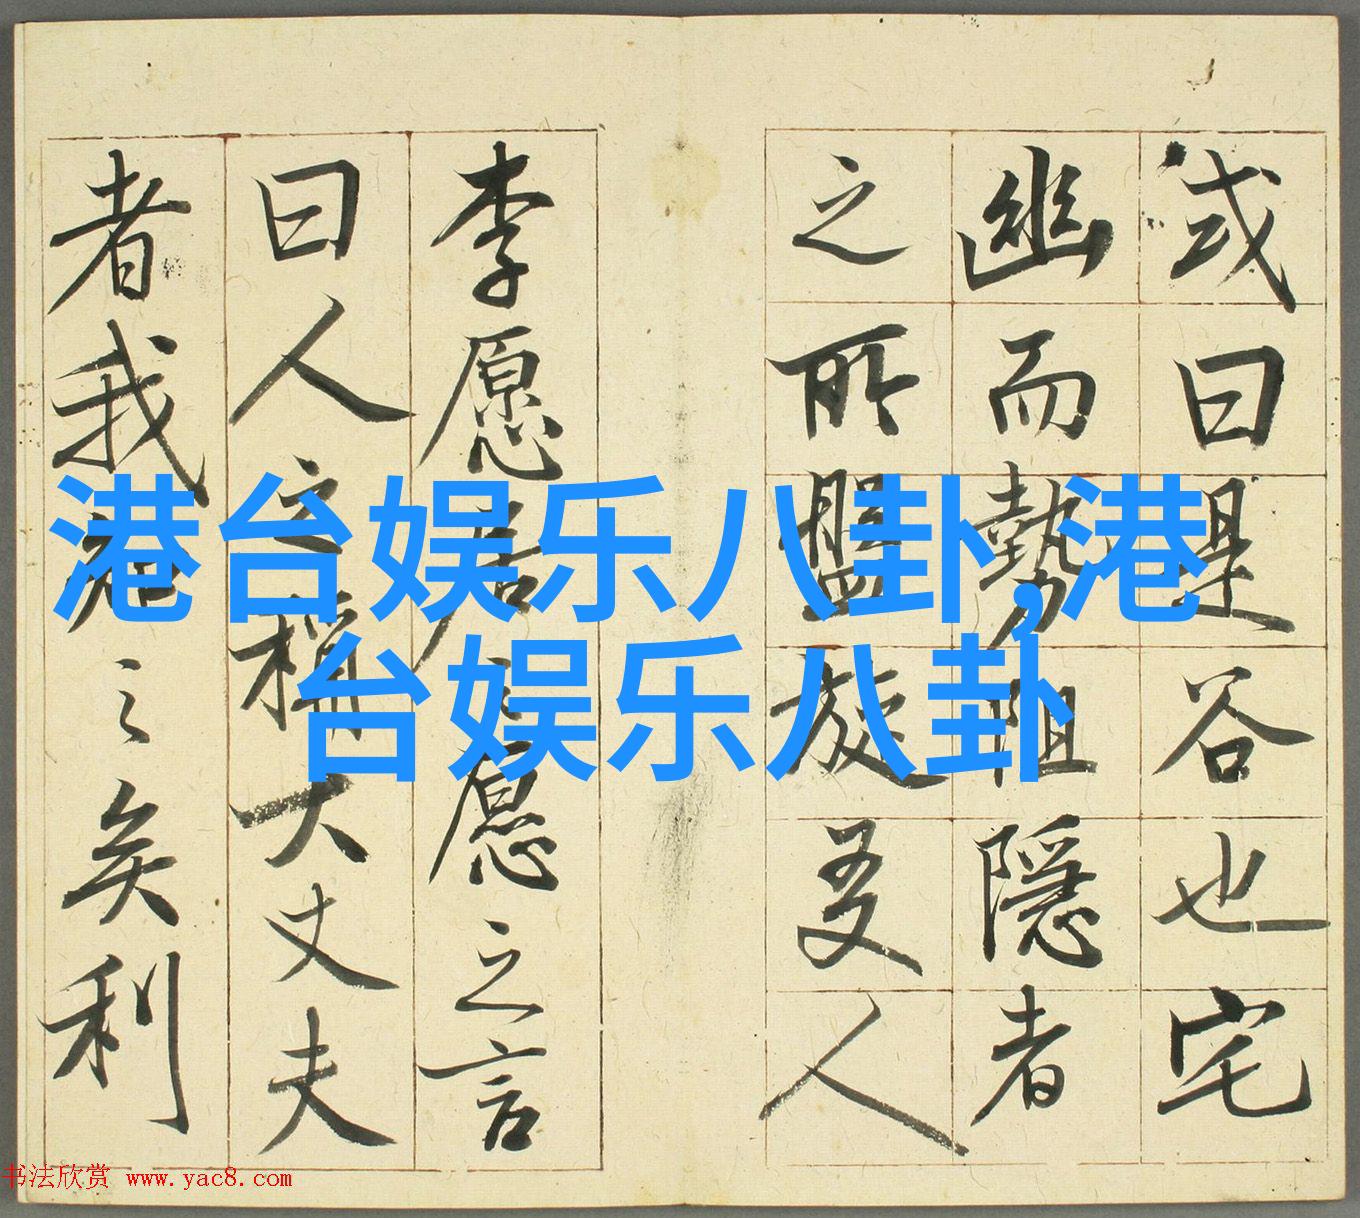 或曰是谷也宅
幽而勢阻隱者
之所盤旋友人
李愿居之愿之言
曰人之稱大丈夫
者我知之矣利
港台娱乐八卦,港
台娱乐八卦
书法欣赏 www.yac8.com